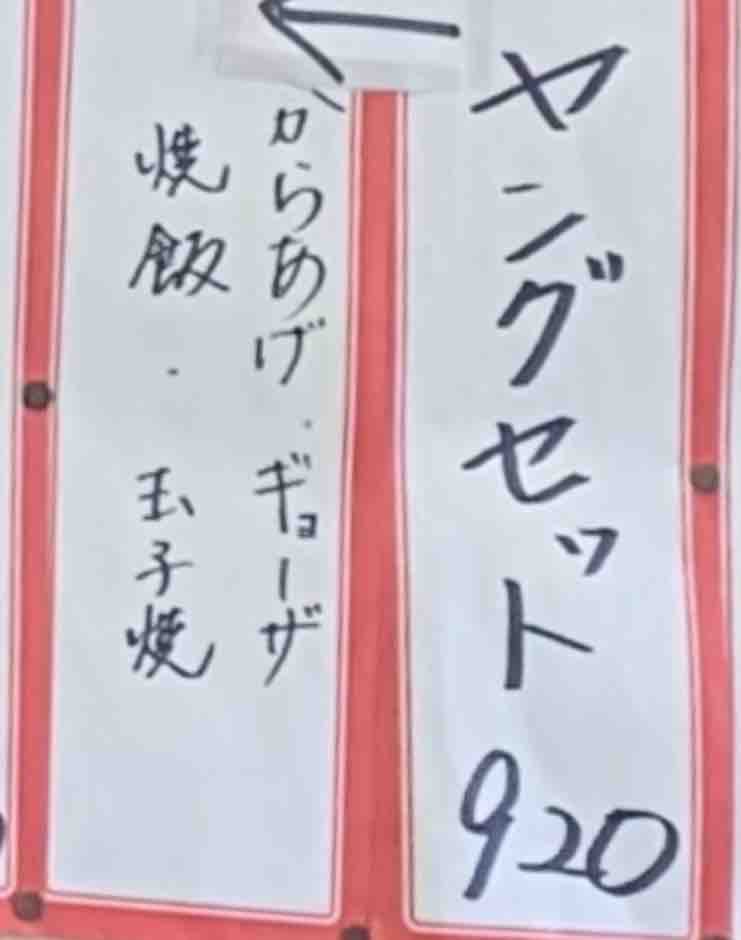 ヤングセット 920
からあげ・ギョーザ
焼飯・玉子焼